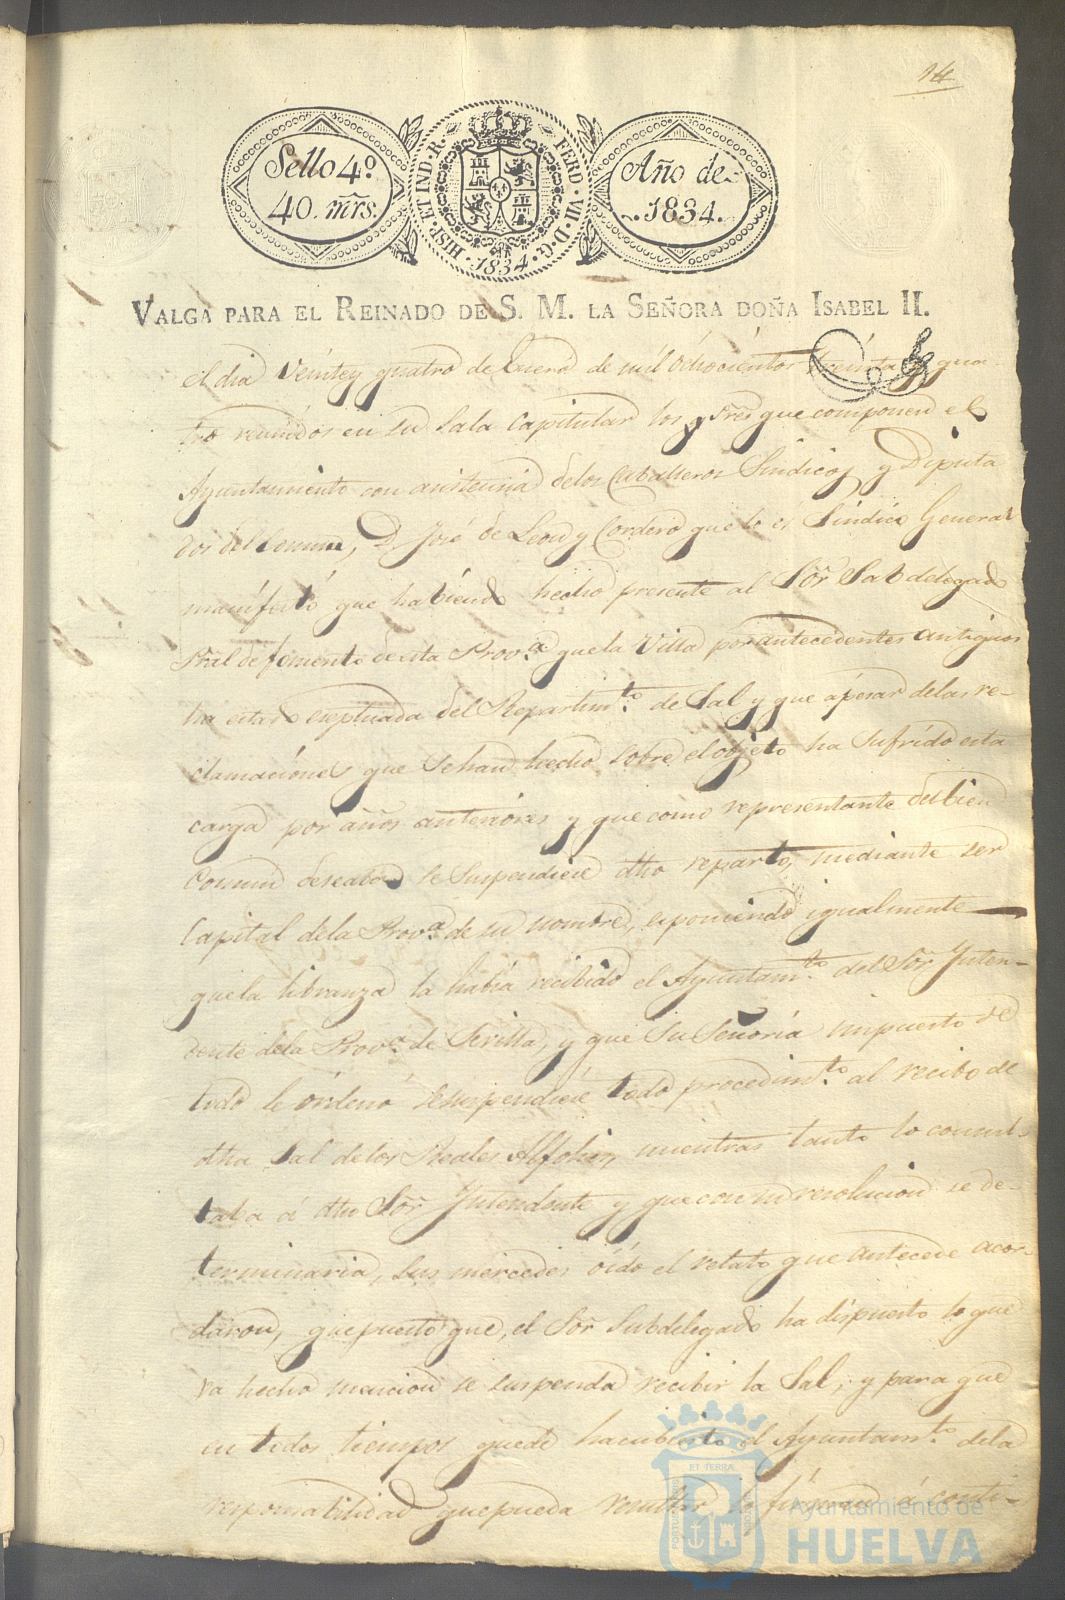 14
Sello 4º
40. mrs.
HISP. ET IND. R. FERD. VII. D. G.
1834
Año de
1834.
VALGA PARA EL REINADO DE S. M. LA SEÑORA DOÑA ISABEL II.
el dia veintey quatro de Enero de mil ochocientos treinta y qua-
tro reunidos en su sala capitular los Sres que componen el
Ayuntamiento con asistencia delos Caballeros Sindicos y Diputa
dos del Comun, D. José de Leon y Cordero que lo es Sindico General
manifestó que habiendo hecho presente al Sor Subdelegado
Pral de fomento de esta Provª que la Villa por antecedentes antiguos
ha estado eseptuada del Repartimto de Sal y que apesar delas re-
clamaciones que sehan hecho sobre el objeto ha sufrido esta
carga por años anteriores y que como representante del bien
Comun deseaba se suspendiese dho reparto, mediante ser
Capital dela Provª de su nombre, esponiendo igualmente
que la libranza la habia recibido el Ayuntamto del Sor Inten-
dente dela Provª de Sevilla, y que Su Señoria impuesto de
todo le órdenó sesuspendiese todo procedimto al recibo de
dha Sal de los Reales Alfolies, mientras tanto lo consul-
taba á dho Sor Intendente y que con su resolucion se de-
terminaria, sus mercedes oido el relato que antecede acor-
daron, que puesto que, el Sor Subdelegado ha dispuesto lo que
va hecho mencion se suspenda recibir la Sal; y para que
en todos tiempos quede hacubierto el Ayuntamto dela
responsabilidad que pueda resultar lo firman á conti-
ET TERRAE
Ayuntamiento de
HUELVA